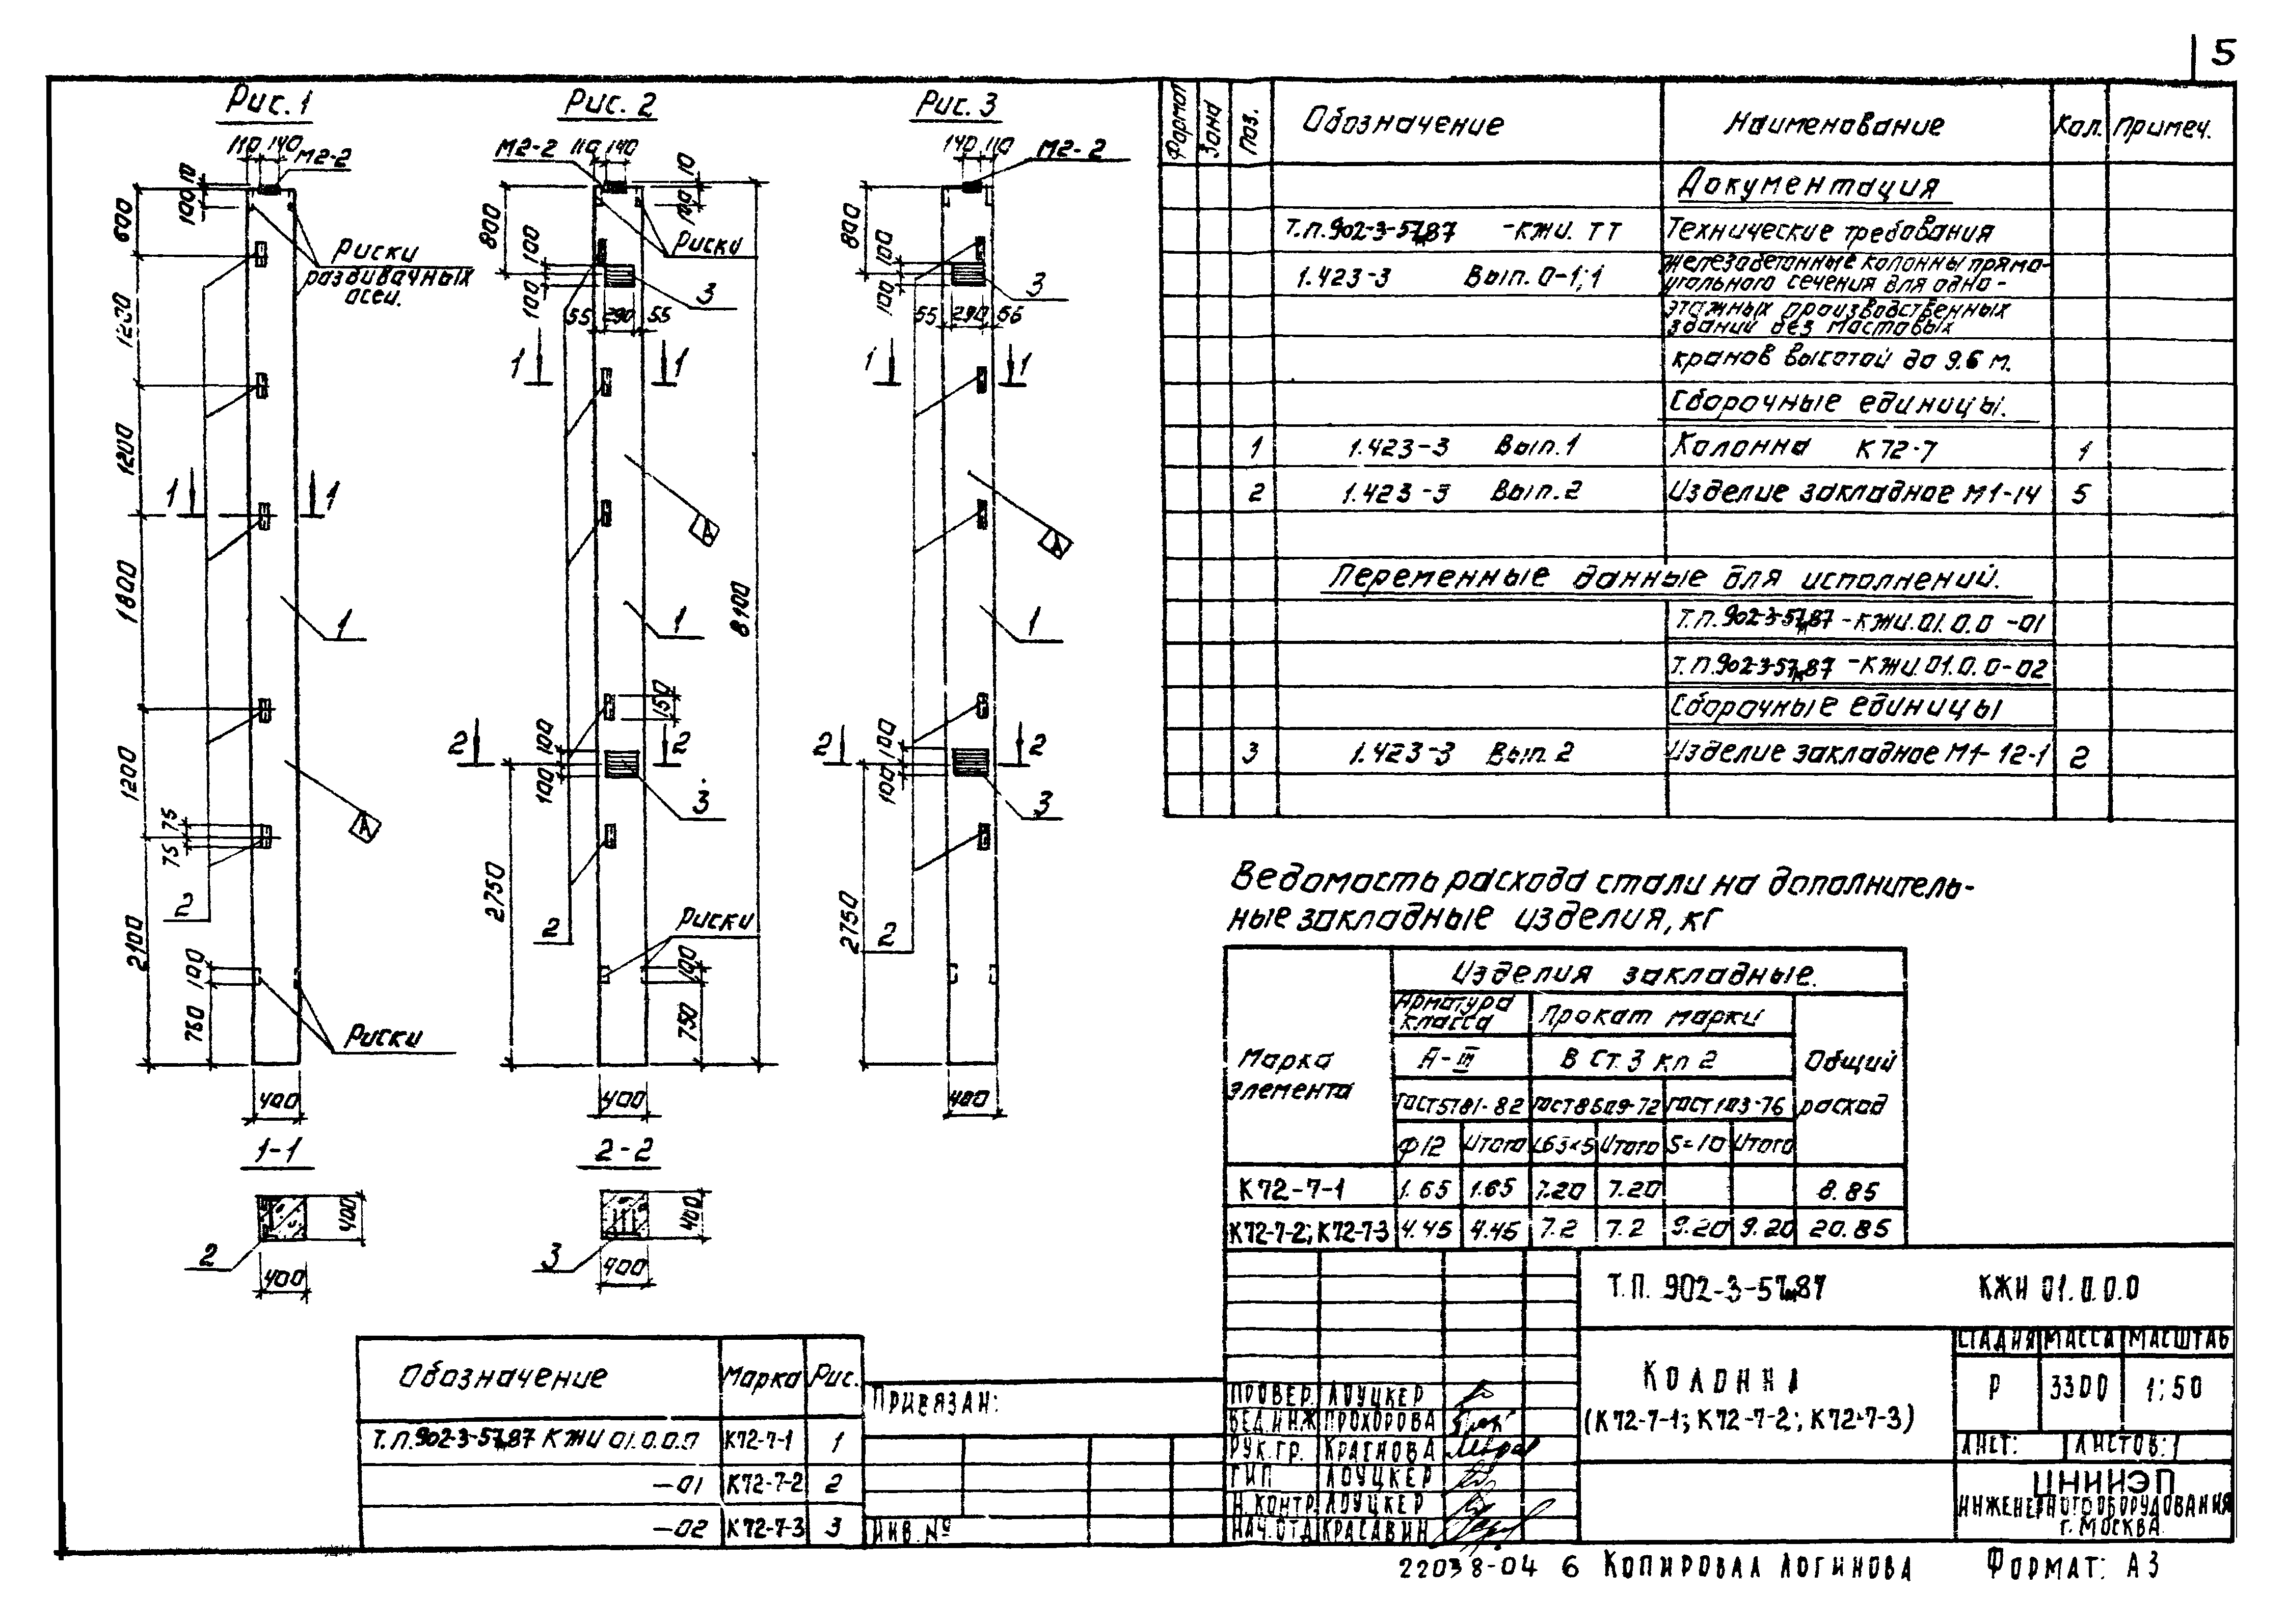 5
Рис. 1
110 140
М2-2
10
100
600
1200
1200
1800
1200
2100
Риски
разбивочных
осей.
1
1
1
А
75
75
2
100
750
Риски
400
Рис. 2
М2-2 110 140
10
100
800
100
100
Риски
3
55 290 55
1
1
А
1
8100
150
100
100
2
2
3
2750
2
Риски
100
750
400
Рис. 3
140 110
М2-2
800
100
100
3
55 290 55
1
1
А
1
100
100
2
2
3
2750
2
400
1-1
400
2
400
2-2
400
3
400
Формат Зона Поз. Обозначение Наименование Кол. Примеч.
Документация
Т.П.902-3-57м.87 -КЖИ. ТТ Технические требования
1.423-3 Вып. 0-1;1 Железобетонные колонны прямо-
угольного сечения для одно-
этажных производственных
зданий без мостовых
кранов высотой до 9.6 м.
Сборочные единицы.
1 1.423-3 Вып. 1 Колонна К72-7 1
2 1.423-3 Вып. 2 Изделие закладное М1-14 5
Переменные данные для исполнений.
Т.П.902-3-57м.87 -КЖИ.01.0.0 -01
Т.П.902-3-57м.87 -КЖИ.01.0.0-02
Сборочные единицы
3 1.423-3 Вып. 2 Изделие закладное М1-12-1 2
Ведомость расхода стали на дополнитель-
ные закладные изделия, кг
Марка
элемента
Изделия закладные.
Арматура
класса
Прокат марки
А-III В Ст. 3 кп 2
Общий
расход
ГОСТ5781-82 ГОСТ8509-72 ГОСТ103-76
Ф12 Итого L63×5 Итого S=10 Итого
К72-7-1 1.65 1.65 7.20 7.20 8.85
К72-7-2; К72-7-3 4.45 4.45 7.2 7.2 9.20 9.20 20.85
Т.П. 902-3-57м.87 КЖИ 01.0.0.0
КОЛОННА
(К72-7-1; К72-7-2; К72-7-3)
СТАДИЯ МАССА МАСШТАБ
Р 3300 1:50
ЛИСТ: ЛИСТОВ: 1
ЦНИИЭП
ИНЖЕНЕРНОГО ОБОРУДОВАНИЯ
Г. МОСКВА
ПРОВЕР. ЛОУЦКЕР
ВЕД.ИНЖ ПРОХОРОВА
РУК.ГР. КРАСНОВА
ГИП ЛОУЦКЕР
Н.КОНТР ЛОУЦКЕР
НАЧ.ОТД КРАСАВИН
Обозначение Марка Рис.
Т.П.902-3-57м.87 КЖИ 01.0.0.0 К72-7-1 1
-01 К72-7-2 2
-02 К72-7-3 3
ПРИВЯЗАН:
ИНВ. №
22038-04 6 КОПИРОВАЛ ЛОГИНОВА ФОРМАТ: А3